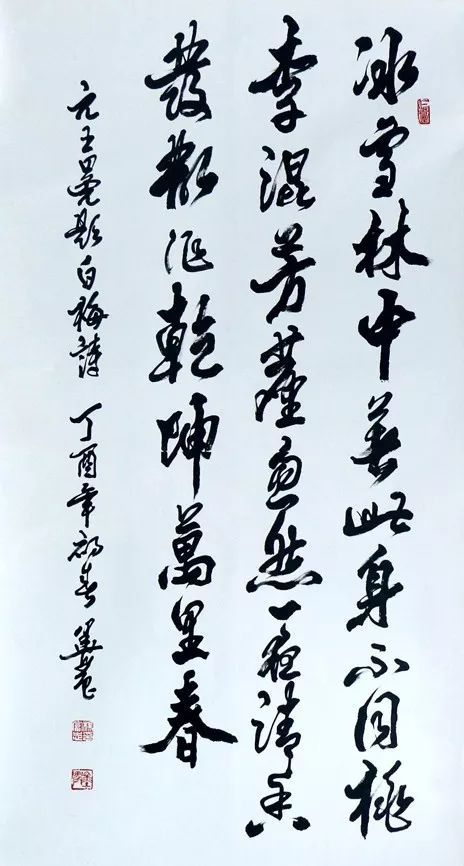 冰雪林中著此身不同桃
李混芳塵忽然一夜清香
發散作乾坤萬里春
元王冕題白梅詩 丁酉年初春